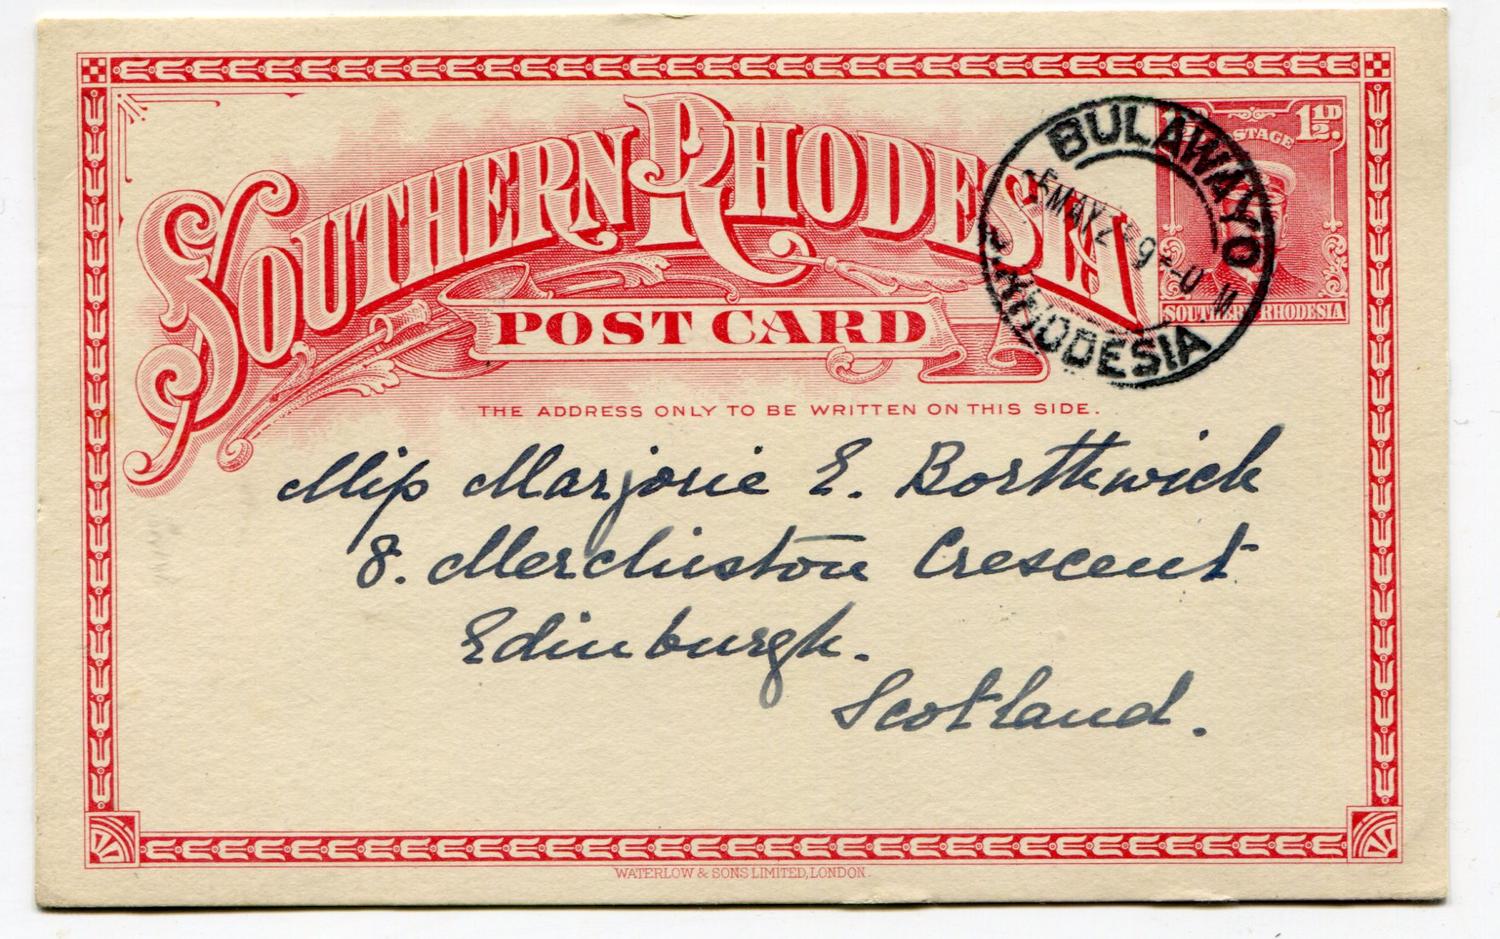 SOUTHERN RHODESIA
POST CARD
THE ADDRESS ONLY TO BE WRITTEN ON THIS SIDE.
POSTAGE 1½D.
SOUTHERN RHODESIA
BULAWAYO
MAY
S. RHODESIA
Miss Marjorie E. Borthwick
8. Merchiston Crescent
Edinburgh.
Scotland.
WATERLOW & SONS LIMITED, LONDON.